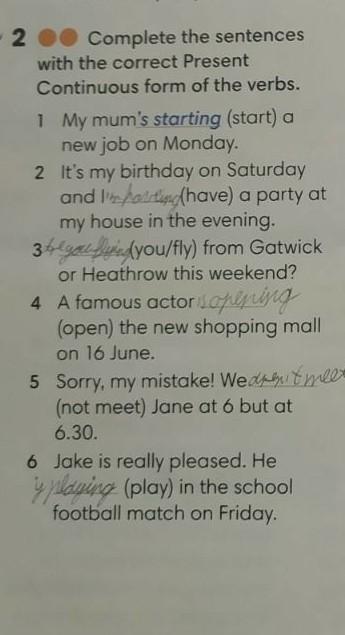 2 Complete the sentences
with the correct Present
Continuous form of the verbs.
1 My mum's starting (start) a
new job on Monday.
2 It's my birthday on Saturday
and I'm (have) a party at
my house in the evening.
3 you flying (you/fly) from Gatwick
or Heathrow this weekend?
4 A famous actor is opening
(open) the new shopping mall
on 16 June.
5 Sorry, my mistake! We meet
(not meet) Jane at 6 but at
6.30.
6 Jake is really pleased. He
playing (play) in the school
football match on Friday.